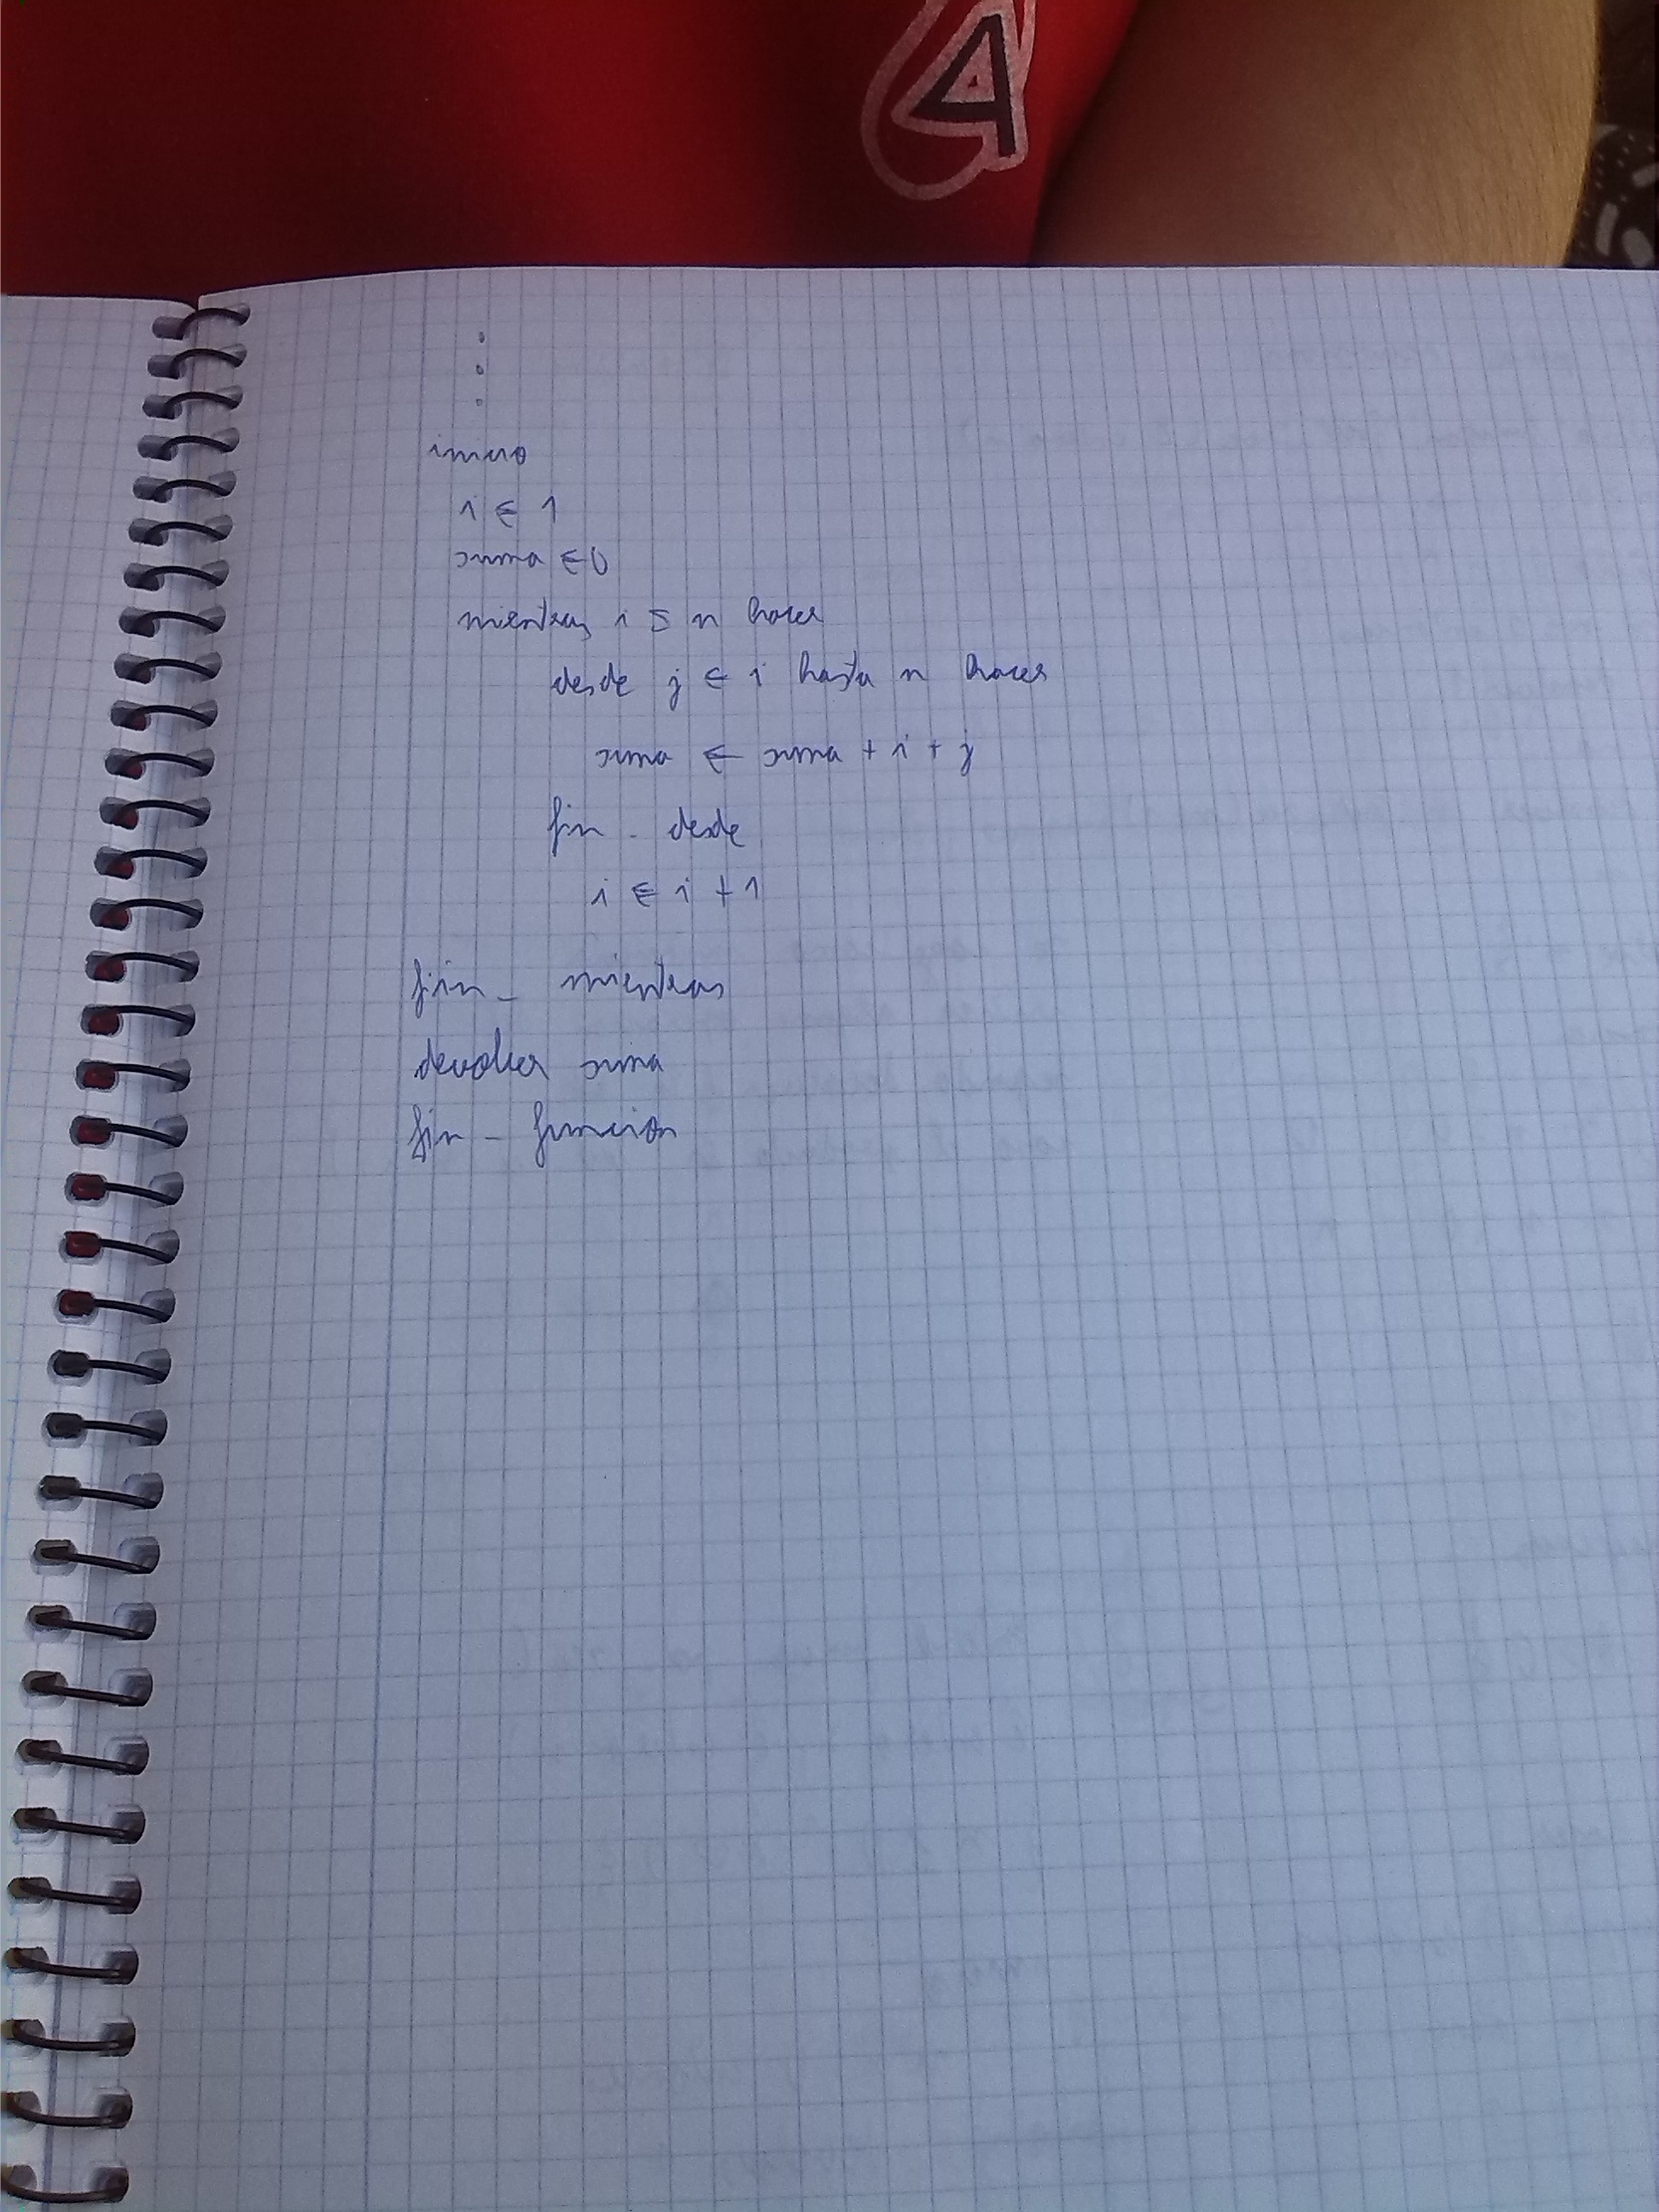 A
inicio
i ← 1
suma ← 0
mientras i ≤ n hacer
desde j ← i hasta n hacer
suma ← suma + i + j
fin - desde
i ← i + 1
fin - mientras
devolver suma
fin - funcion